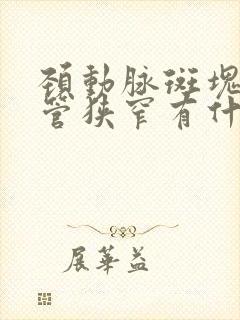 頚動脉斑塊
管狭窄有什
展華益